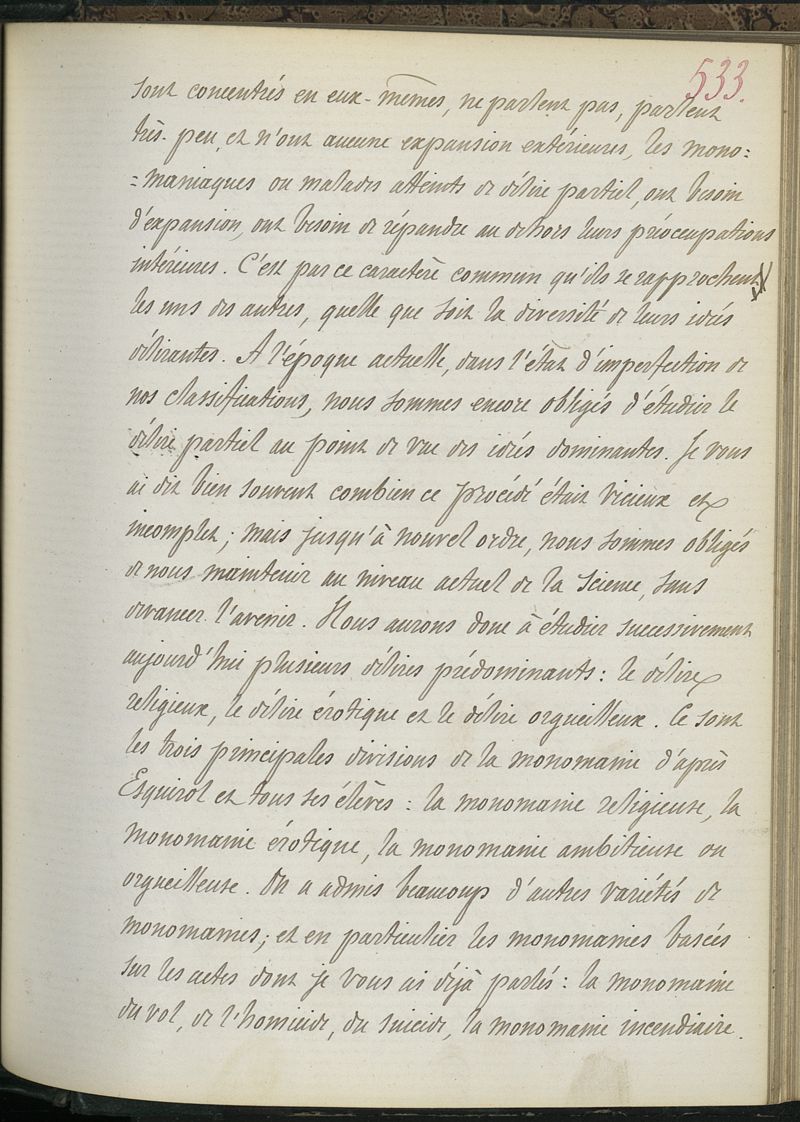 533.
sont concentrés en eux-mêmes, ne parlent pas, parlent
très-peu, et n'ont aucune expansion extérieures, les mono=
=maniaques ou malades atteints de délire partiel, ont besoin
d'expansion, ont besoin de répandre au dehors leurs préoccupations
intérieures. C'est par ce caractère commun qu'ils se rapprochent
les uns des autres, quelle que soit la diversité de leurs idées
délirantes. A l'époque actuelle, dans l'état d'imperfection de
nos classifications, nous sommes encore obligés d'étudier le
délire partiel au point de vue des idées dominantes. Je vous
ai dit bien souvent combien ce procédé était vicieux et
incomplet; mais jusqu'à nouvel ordre, nous sommes obligés
de nous maintenir au niveau actuel de la Science, sans
devancer l'avenir. Nous aurons donc à étudier successivement
aujourd'hui plusieurs délires prédominants: le délire
religieux, le délire érotique et le délire orgueilleux. Ce sont
les trois principales divisions de la monomanie d'après
Esquirol et tous ses élèves: la monomanie religieuse, la
monomanie érotique, la monomanie ambitieuse ou
orgueilleuse. On a admis beaucoup d'autres variétés de
monomanies; et en particulier les monomanies basées
sur les actes dont je vous ai déjà parlés: la monomanie
du vol, de l'homicide, du suicide, la monomanie incendiaire.